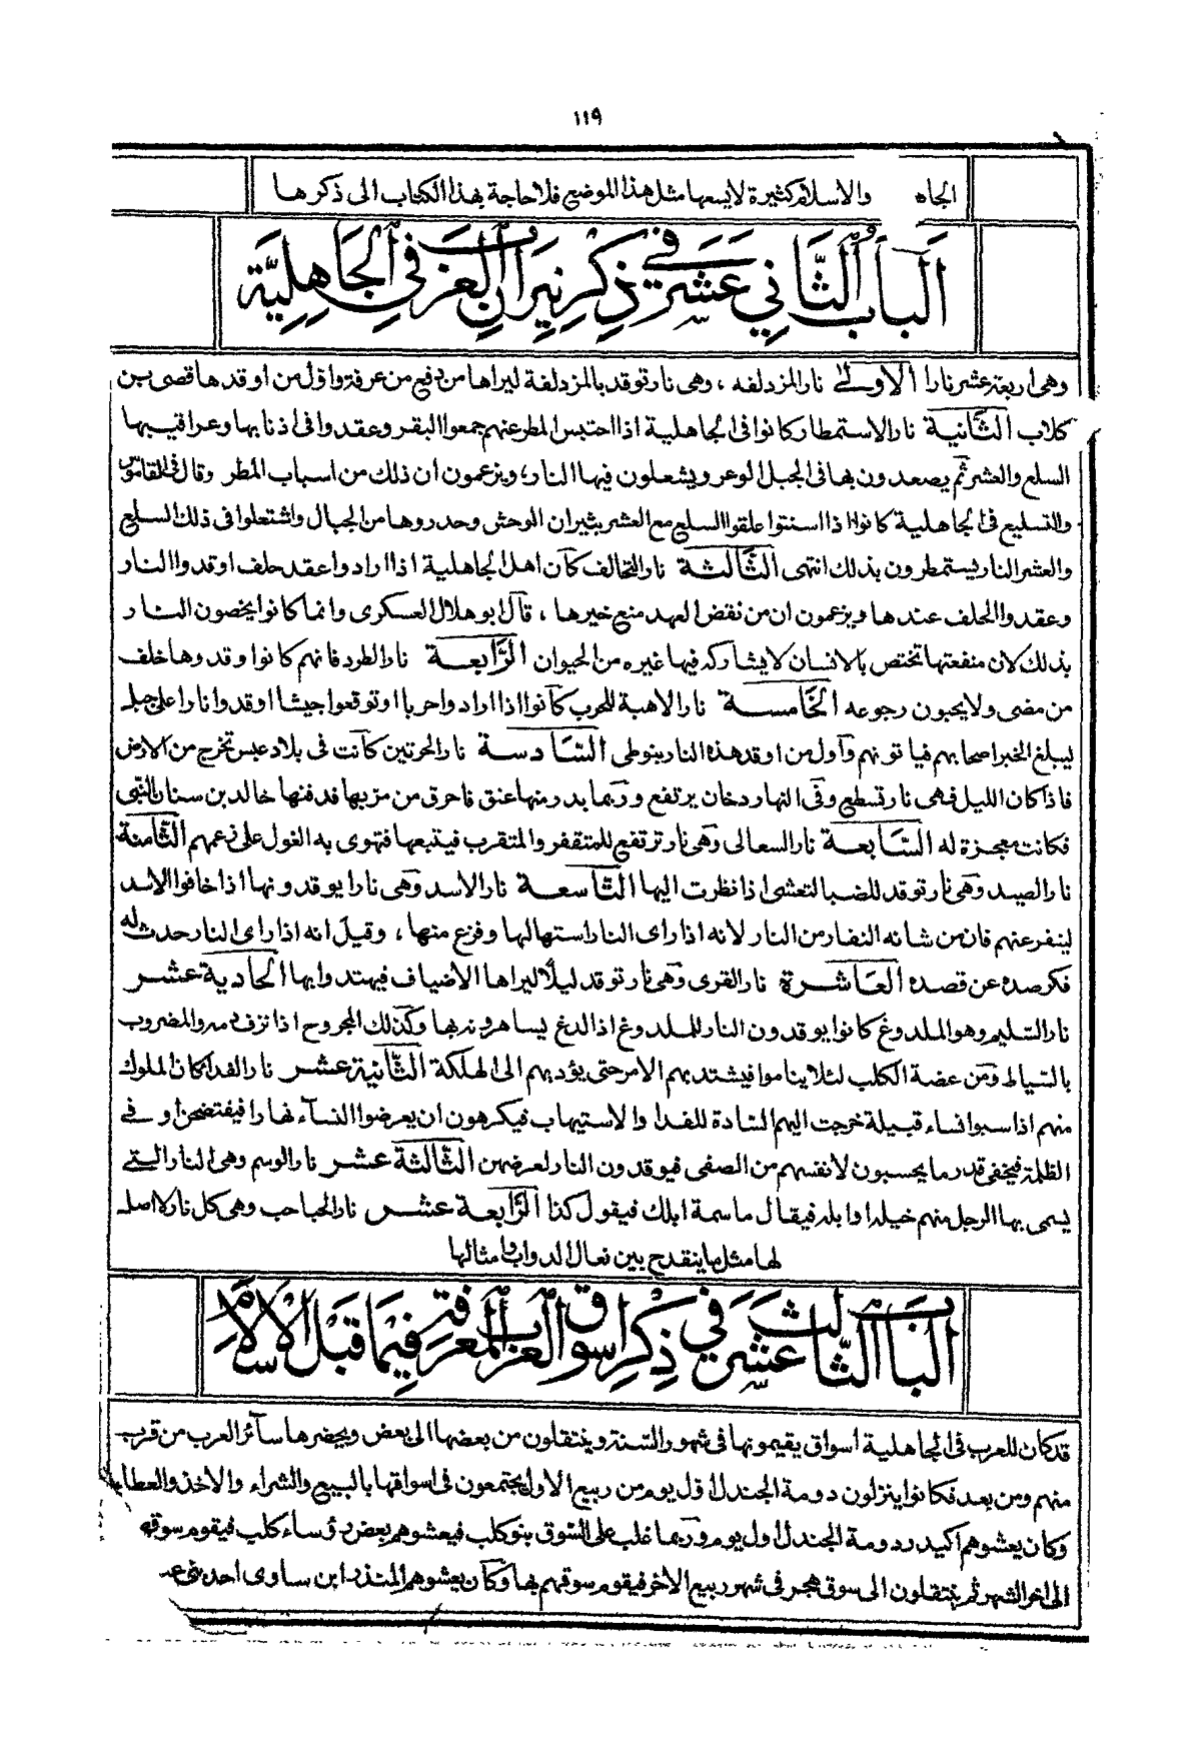 ١١٩
الجاه والاسلام كثيرة لا يسعها مثل هذا الموضع فلا حاجة بهذا الكتاب الى ذكرها
اَلبابُ الثَّاني عَشَرَ في ذِكرِ نيرانِ العَرَبِ في الجَاهِليَّة
وهى اربعة عشر نارا الاولىٰ نار المزدلفه ، وهى نار توقد بالمزدلفة ليراها من دفع من عرفة واوّل من اوقدها قصى بن
كلاب الثّانية نار الاستمطار كانوا فى الجاهلية اذا احتبس المطر عنهم جمعوا البقر وعقدوا فى اذنابها وعراقيبها
السلع والعشر ثم يصعدون بها فى الجبل الوعر ويشعلون فيها النار، ويزعمون ان ذلك من اسباب المطر وقال فى القاموس
والتسليع فى الجاهلية كانوا اذا اسنتوا علقوا السلع مع العشر بثيران الوحش وحدروها من الجبال واشتعلوا فى ذلك السلع
والعشر النار يستمطرون بذلك انتهى الثّالثة نار التحالف كان اهل الجاهلية اذا ارادوا عقد حلف اوقدوا النار
وعقدوا الحلف عندها ويزعمون ان من نقض العهد منع خيرها ، قال ابو هلال العسكرى وانما كانوا يخصون النار
بذلك لان منفعتها تختص بالانسان لا يشاركه فيها غيره من الحيوان الرّابعة نار الطرد فانهم كانوا وقدوها خلف
من مضى ولا يحبون رجوعه الخامسة نار الاهبة للحرب كانوا اذا ارادوا حربا او توقعوا جيشا اوقدوا نارا على جبل
ليبلغ الخبر اصحابهم فياتونهم واول من اوقد هذه النار بنوطى السّادسة نار الحرتين كانت فى بلاد عبس تخرج من الارض
فاذا كان الليل فهى نار تسطع وفى النهار دخان يرتفع وربما بدر منها عنق فاحرق من مر بها فدفنها خالد بن سنان النبى
فكانت معجزة له السّابعة نار السعالى وهى نار ترتفع للمتقفر والمتقرب فيتبعها فتهوى به الغول على زعمهم الثّامنة
نار الصيد وهى نار توقد للضبا لتعشى اذا نظرت اليها التّاسعة نار الاسد وهى نار ايوقدونها اذا خافوا الاسد
لينفر عنهم فان من شانه النفار من النار لانه اذا راى النار استهالها وفزع منها ، وقيل انه اذا راى النار حدث له
فكر صده عن قصده العاشرة نار القرى وهى نار توقد ليلًا ليراها الاضياف فيهتدوا بها الحادية عشر
نار السّليم وهو الملدوغ كانوا يوقدون النار للملدوغ اذا لدغ يساهرونه بها وكذلك المجروح اذا نزف دمه والمضروب
بالسّياط ومن عضة الكلب لئلا يناموا فيشتد بهم الامر حتى يؤديهم الى الهلكة الثّانية عشر نار الفدا كان الملوك
منهم اذا سبوا نساء قبيلة خرجت اليهم السّادة للفدا والاستيهاب فيكرهون ان يعرضوا النساء نهارا فيفتضحن او فى
الظلمة فيخفى قدر ما يحسبون لانفسهم من الصفى فيوقدون النار لعرضهن الثّالثة عشر نار الوسم وهى النار التى
يسمى بها الرجل منهم خيله او ابله فيقال ما سمة ابلك فيقول كذا الرّابعة عشر نار الحباحب وهى كل نار لا اصل
لها مثل ما ينقدح بين نعال الدواب وامثالها
البابُ الثّالث عشر في ذكر اسواق العرب المعرفة فيما قبل الاسلام
قد كان للعرب فى الجاهلية اسواق يقيمونها فى شهور السّنة وينتقلون من بعضها الى بعض ويحضرها سائر العرب من قرب
منهم ومن بعد فكانوا ينزلون دومة الجندل اوّل يوم من ربيع الاول يجتمعون فى اسواقها بالبيع والشراء والاخذ والعطا
وكان يعشوهم اكيدر دومة الجندل اول يوم وربما غلب على السّوق بنو كلب فيعشوهم بعض رؤساء كلب فيقوم سوقه
الى اخر الشهر ثم ينتقلون الى سوق هجر فى شهر ربيع الاخر فيقوم سوقهم بها وكان يعشوهم المنذر ابن ساوى احد بنى عبد